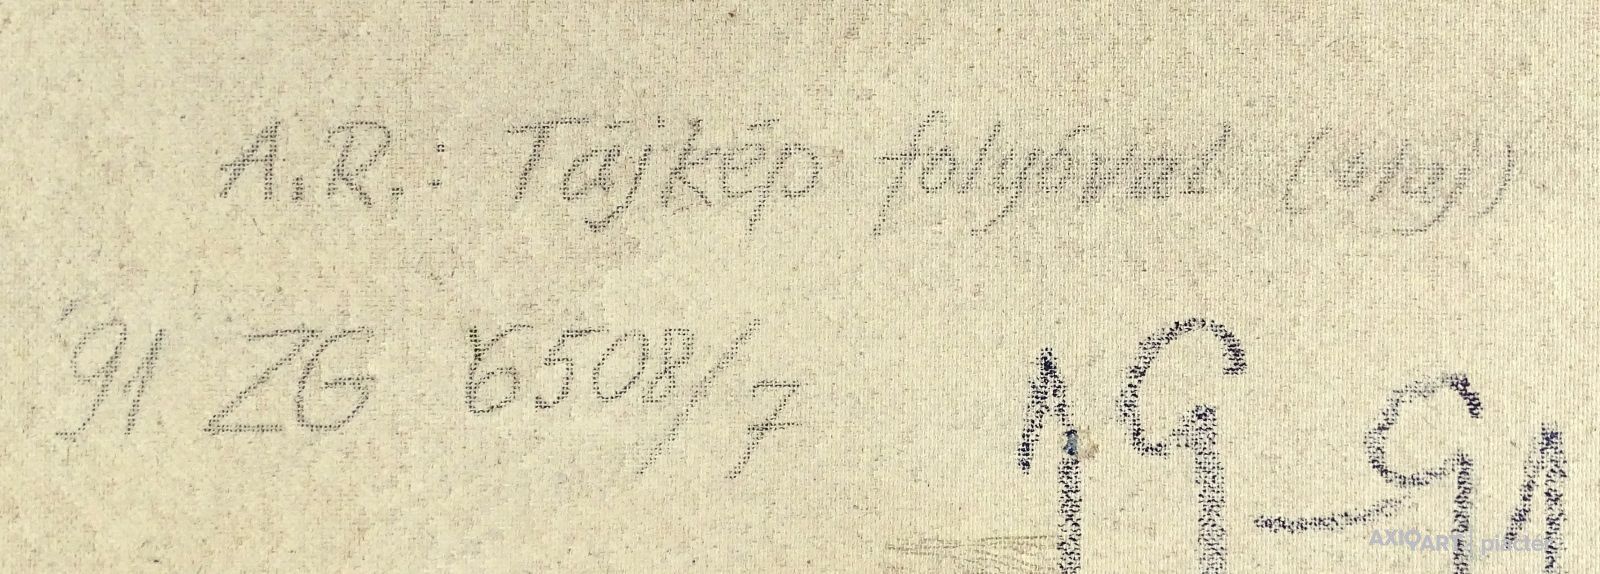 A.R.: Tájkép folyóval (olaj)
'91 ZG 6508/7
19-91
AXIOART | piactér